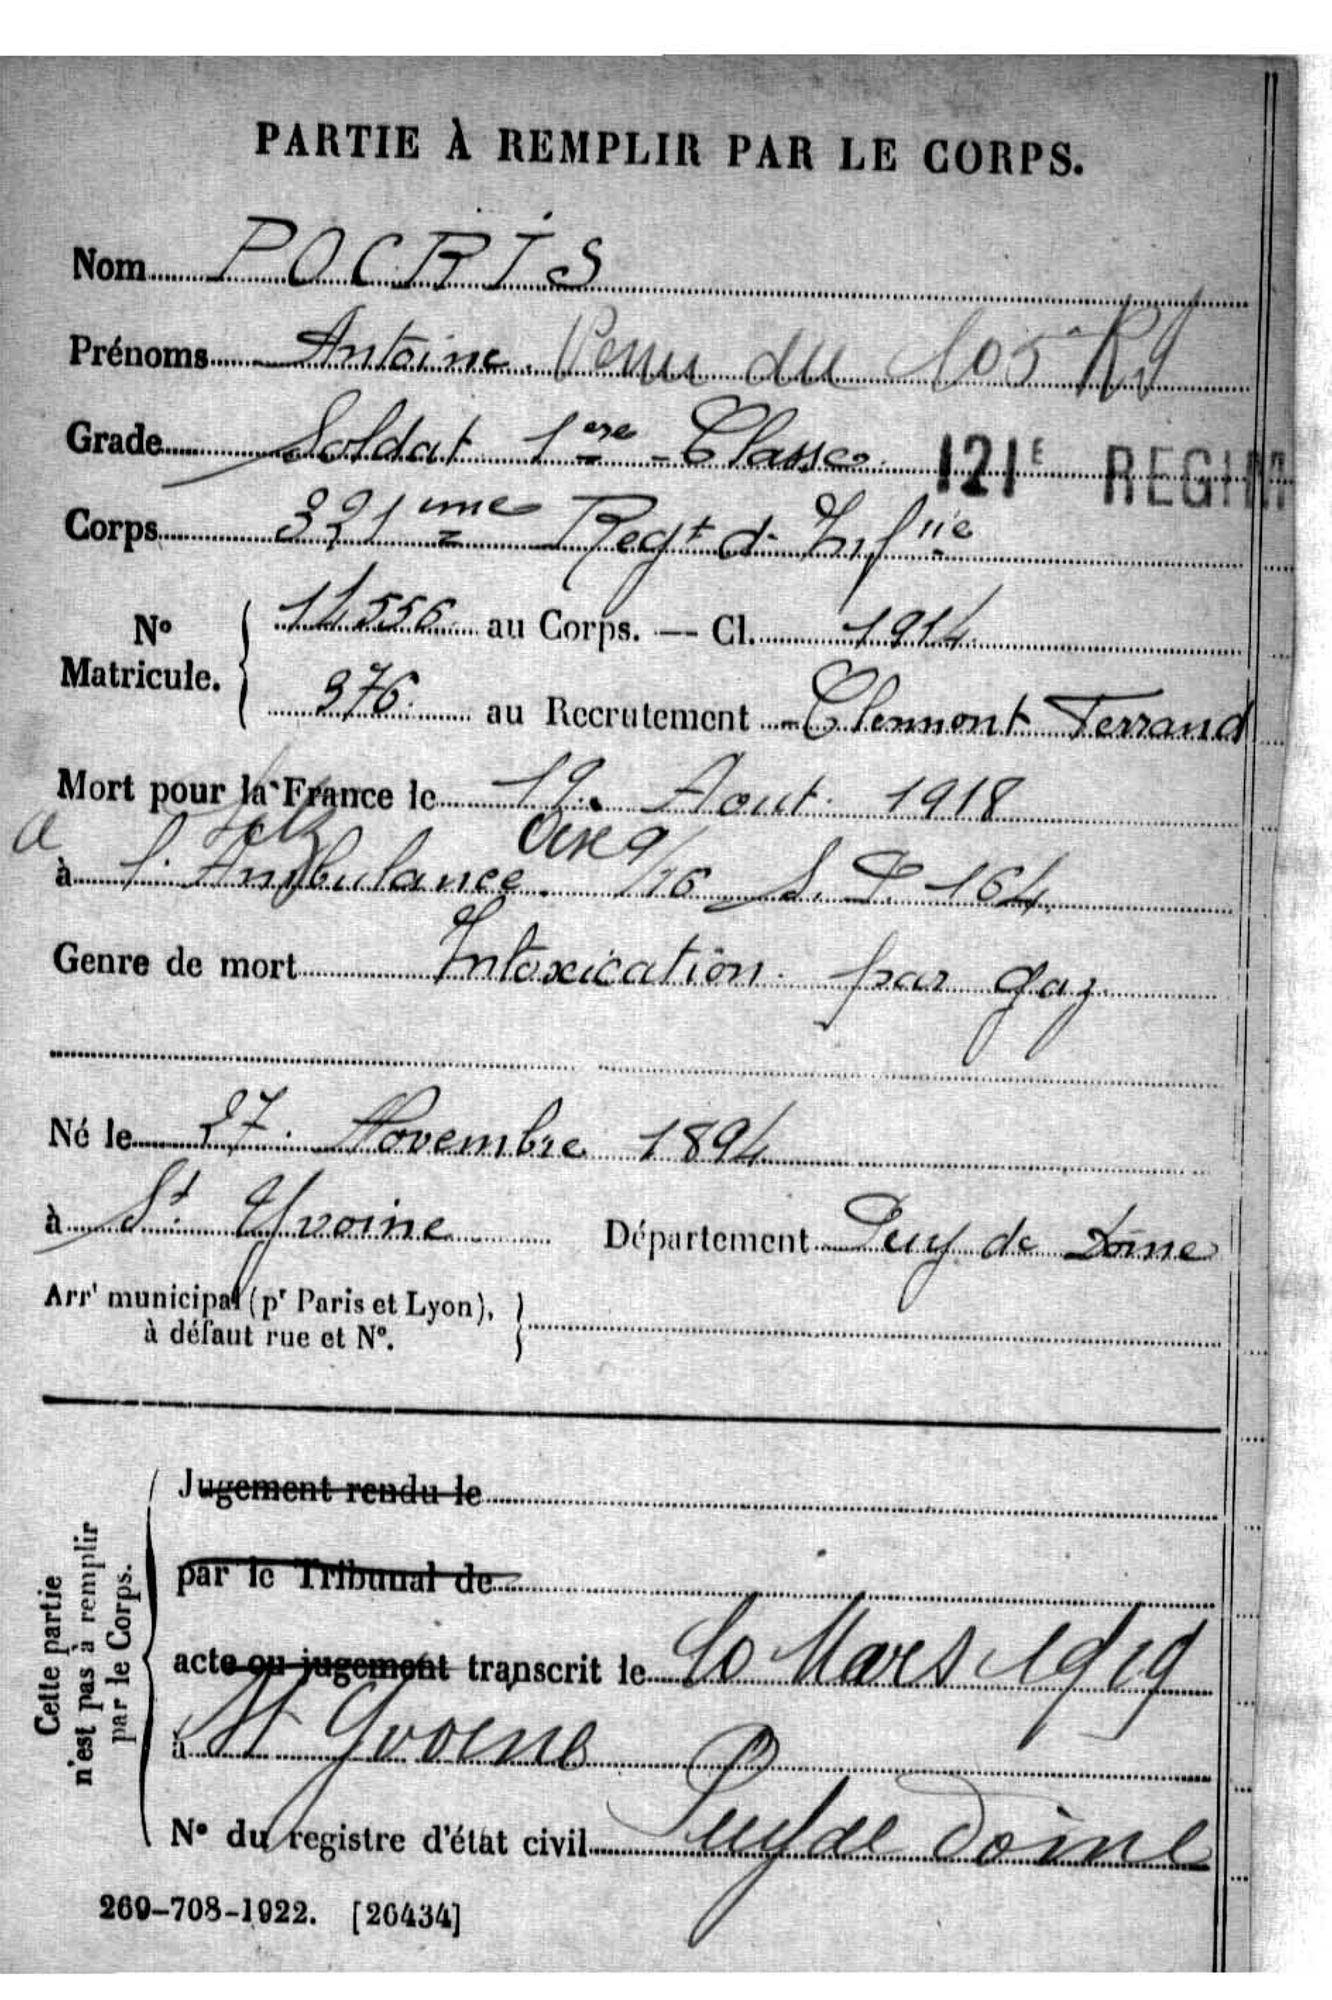 PARTIE À REMPLIR PAR LE CORPS.
Nom POCRIS
Prénoms Antoine. Venu du 105e RI
Grade Soldat 1ere Classe 121E REGIM
Corps 321me Regt d. Infiie
No Matricule. 11556 au Corps. — Cl. 1914
976. au Recrutement Clermont Ferrand
Mort pour la France le 19. Aout. 1918
a Oise
à l'Ambulance 9/16 S. P. 164
Genre de mort Intoxication par gaz
Né le 27. Novembre 1894
à St. Yvoine Département Puy de Dome
Arrt municipal (pr Paris et Lyon),
à défaut rue et No.
Cette partie n'est pas à remplir par le Corps.
Jugement rendu le
par le Tribunal de
acte ou jugement transcrit le 10 Mars 1919
à St Yvoine
No du registre d'état civil Puy de Dome
269-708-1922. [26434]